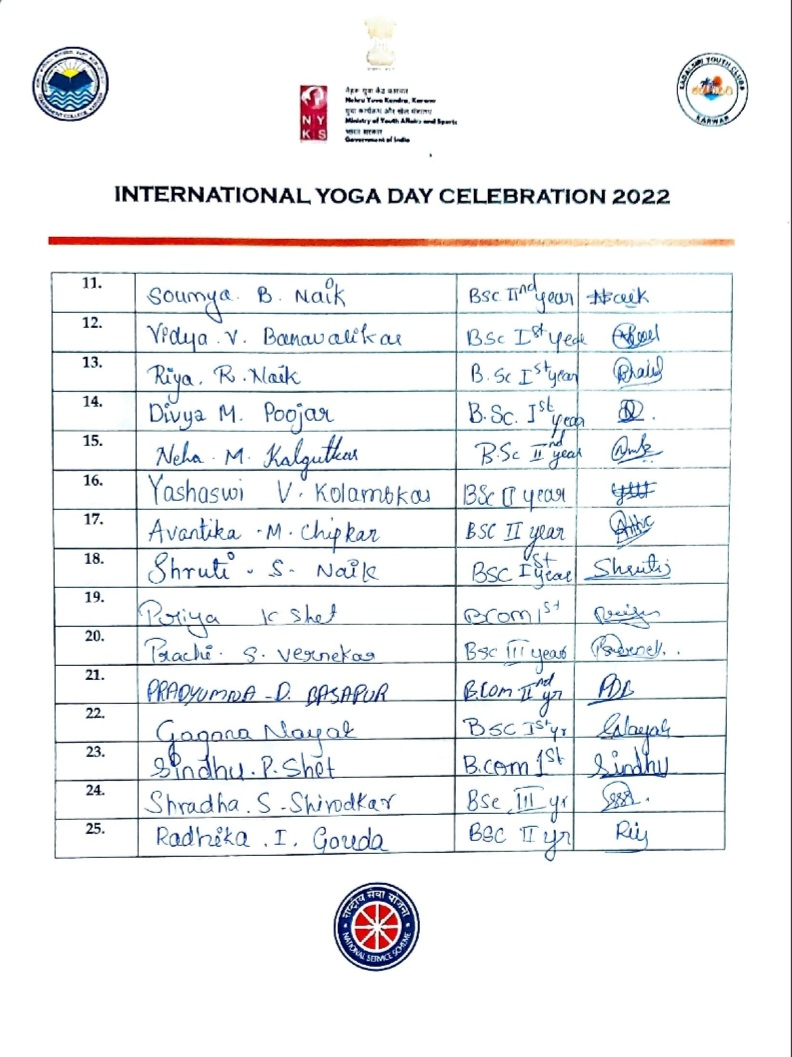 नेहरू युवा केंद्र कारवार
Nehru Yuva Kendra, Karwar
युवा कार्यक्रम और खेल मंत्रालय
Ministry of Youth Affairs and Sports
भारत सरकार
Government of India
NY
KS
KADALSIRI YOUTH CLUB
KARWAR
INTERNATIONAL YOGA DAY CELEBRATION 2022
11. Soumya. B. Naik BSc IInd year Naik
12. Vidya. V. Banavalikar BSc Ist year
13. Riya. R. Naik B.Sc Ist year
14. Divya M. Poojar B.Sc. Ist year
15. Neha. M. Kalgutkar B.Sc IInd year
16. Yashaswi V. Kolambkar BSc II year
17. Avantika .M. Chipkar BSC II year
18. Shruti . S. Naik BSC Ist year Shruti
19. Poriya K Shet BCom 1st
20. Prachi. S. Vernekar BSc III year
21. PRADYUMNA -D. BASAPUR B.Com IInd yr PDB
22. Gagana Nayak BSC Ist yr GNayak
23. Sindhu. P. Shet B.com 1st Sindhu
24. Shradha. S. Shirodkar BSc III yr
25. Radhika . I. Gouda BSC II yr
राष्ट्रीय सेवा योजना
NATIONAL SERVICE SCHEME